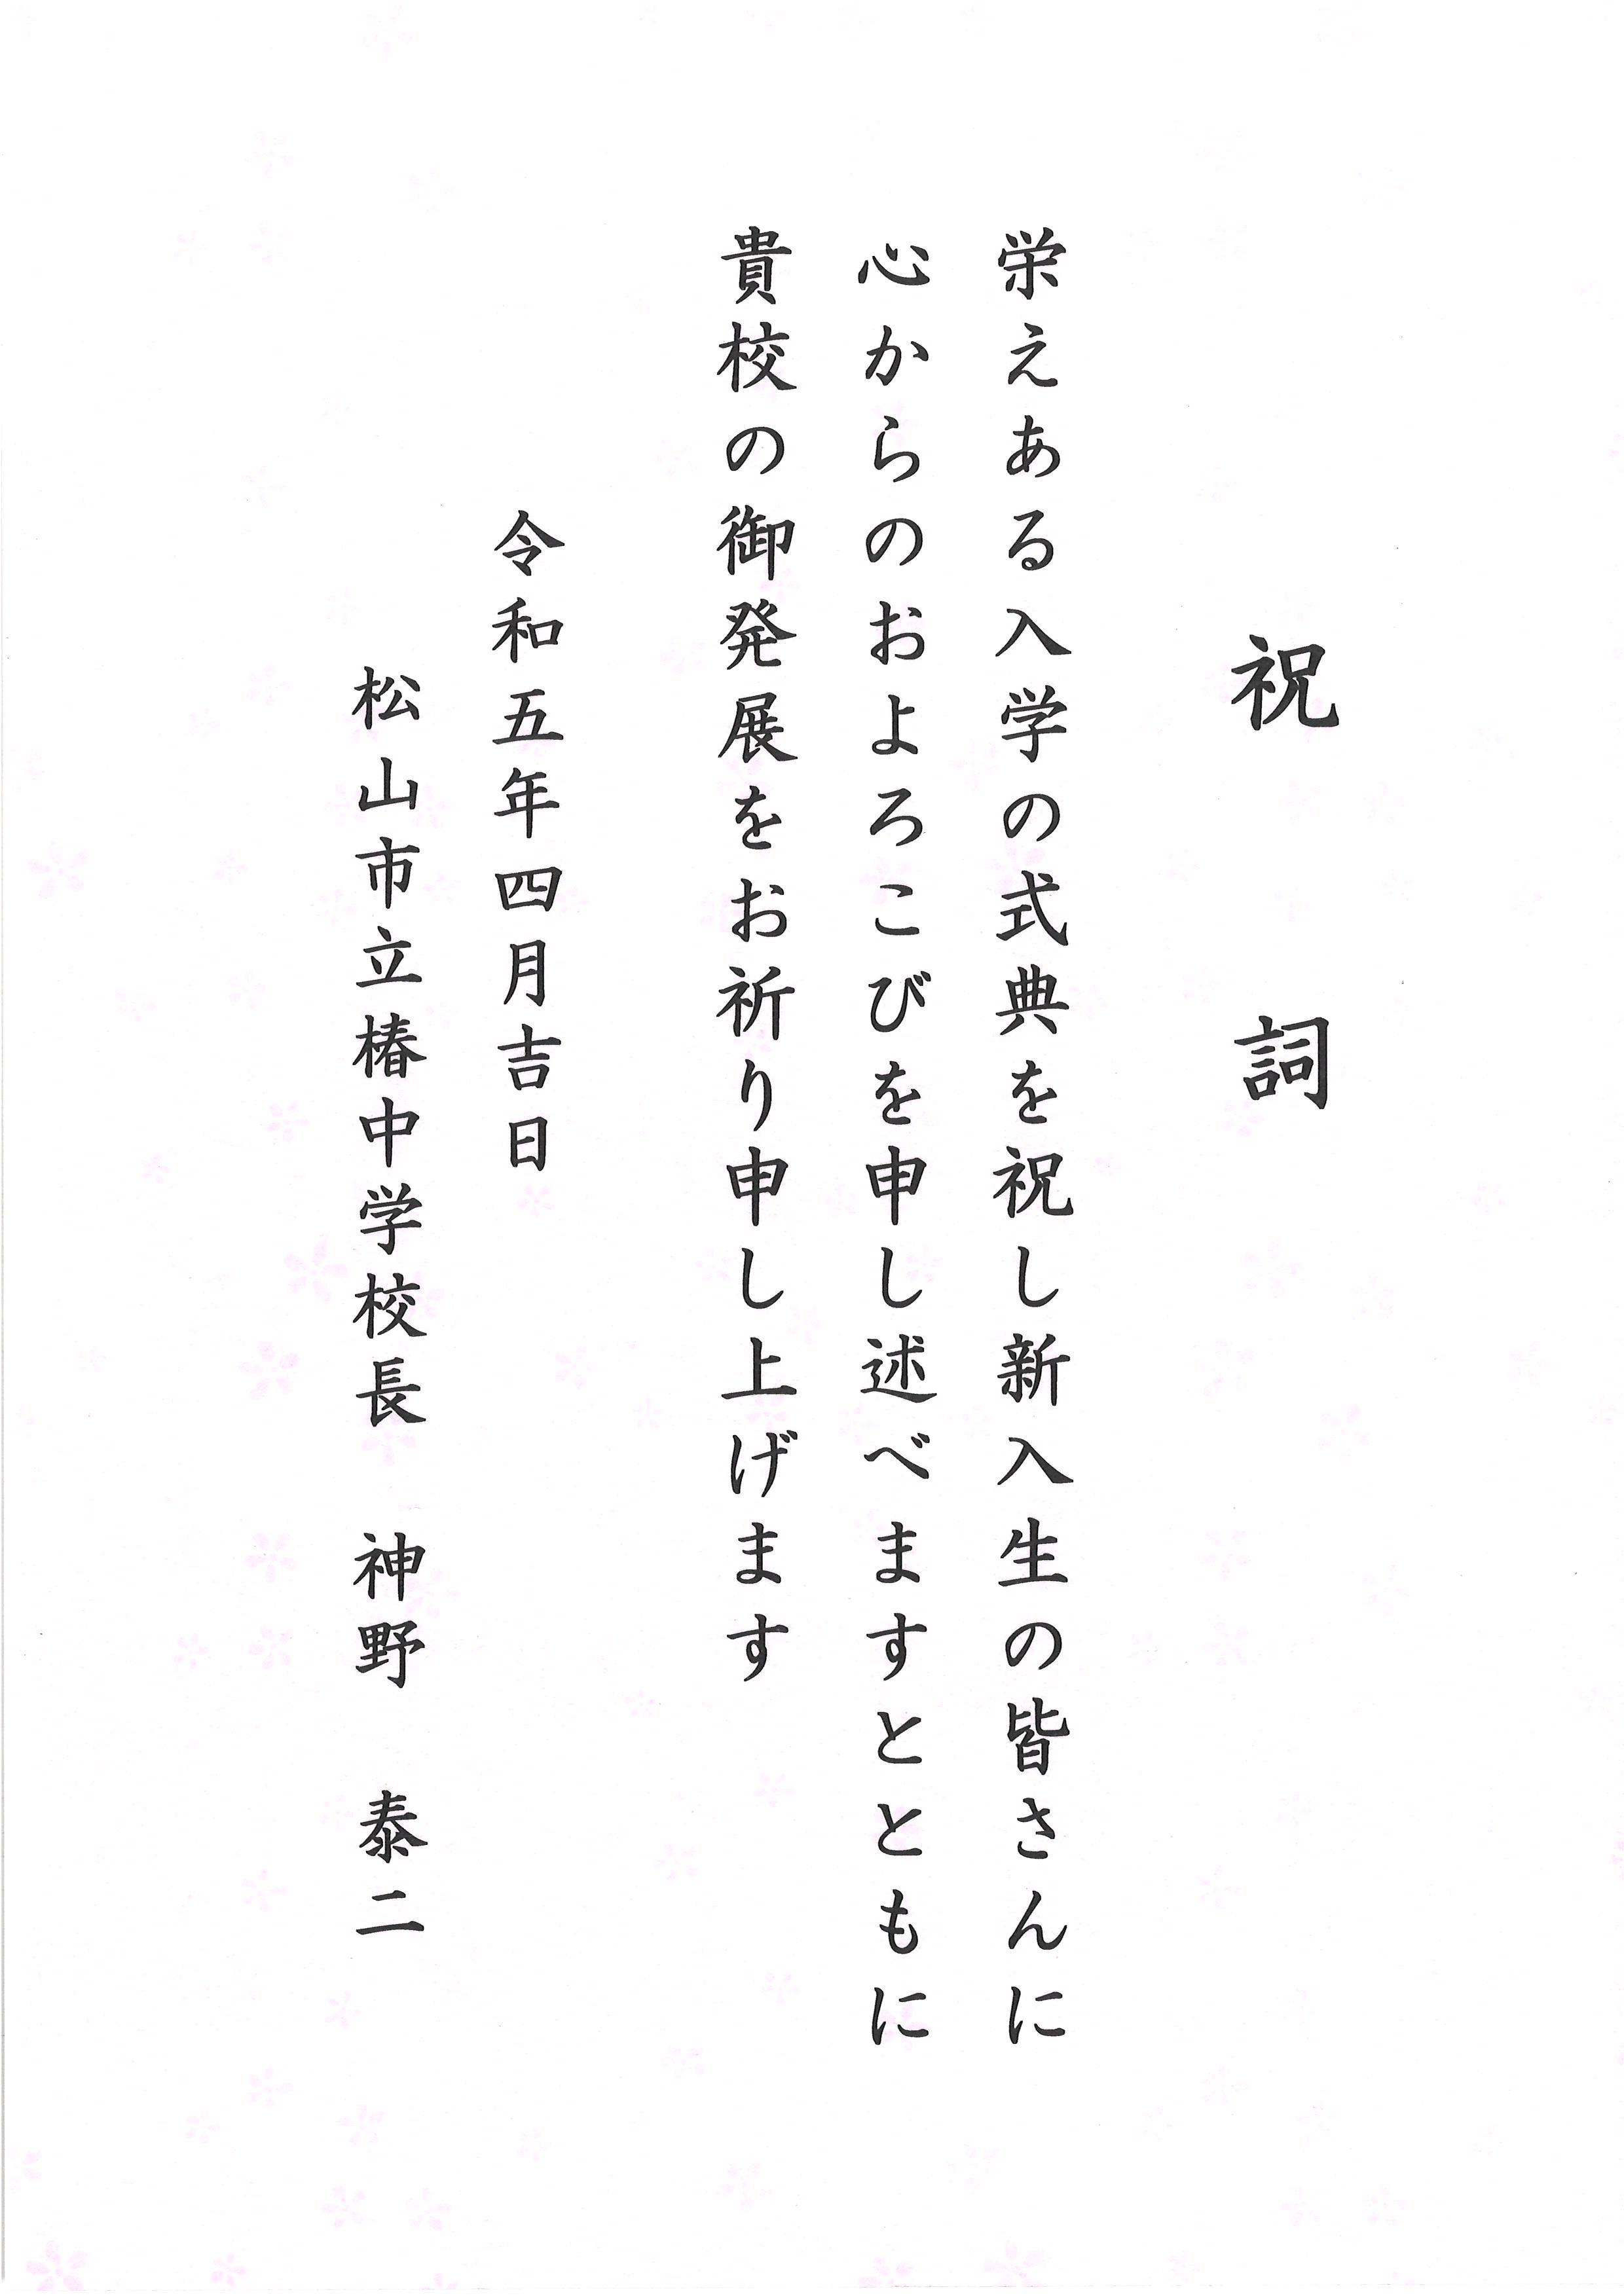 祝詞
栄えある入学の式典を祝し新入生の皆さんに
心からのおよろこびを申し述べますとともに
貴校の御発展をお祈り申し上げます
令和五年四月吉日
松山市立椿中学校長　神野　泰二